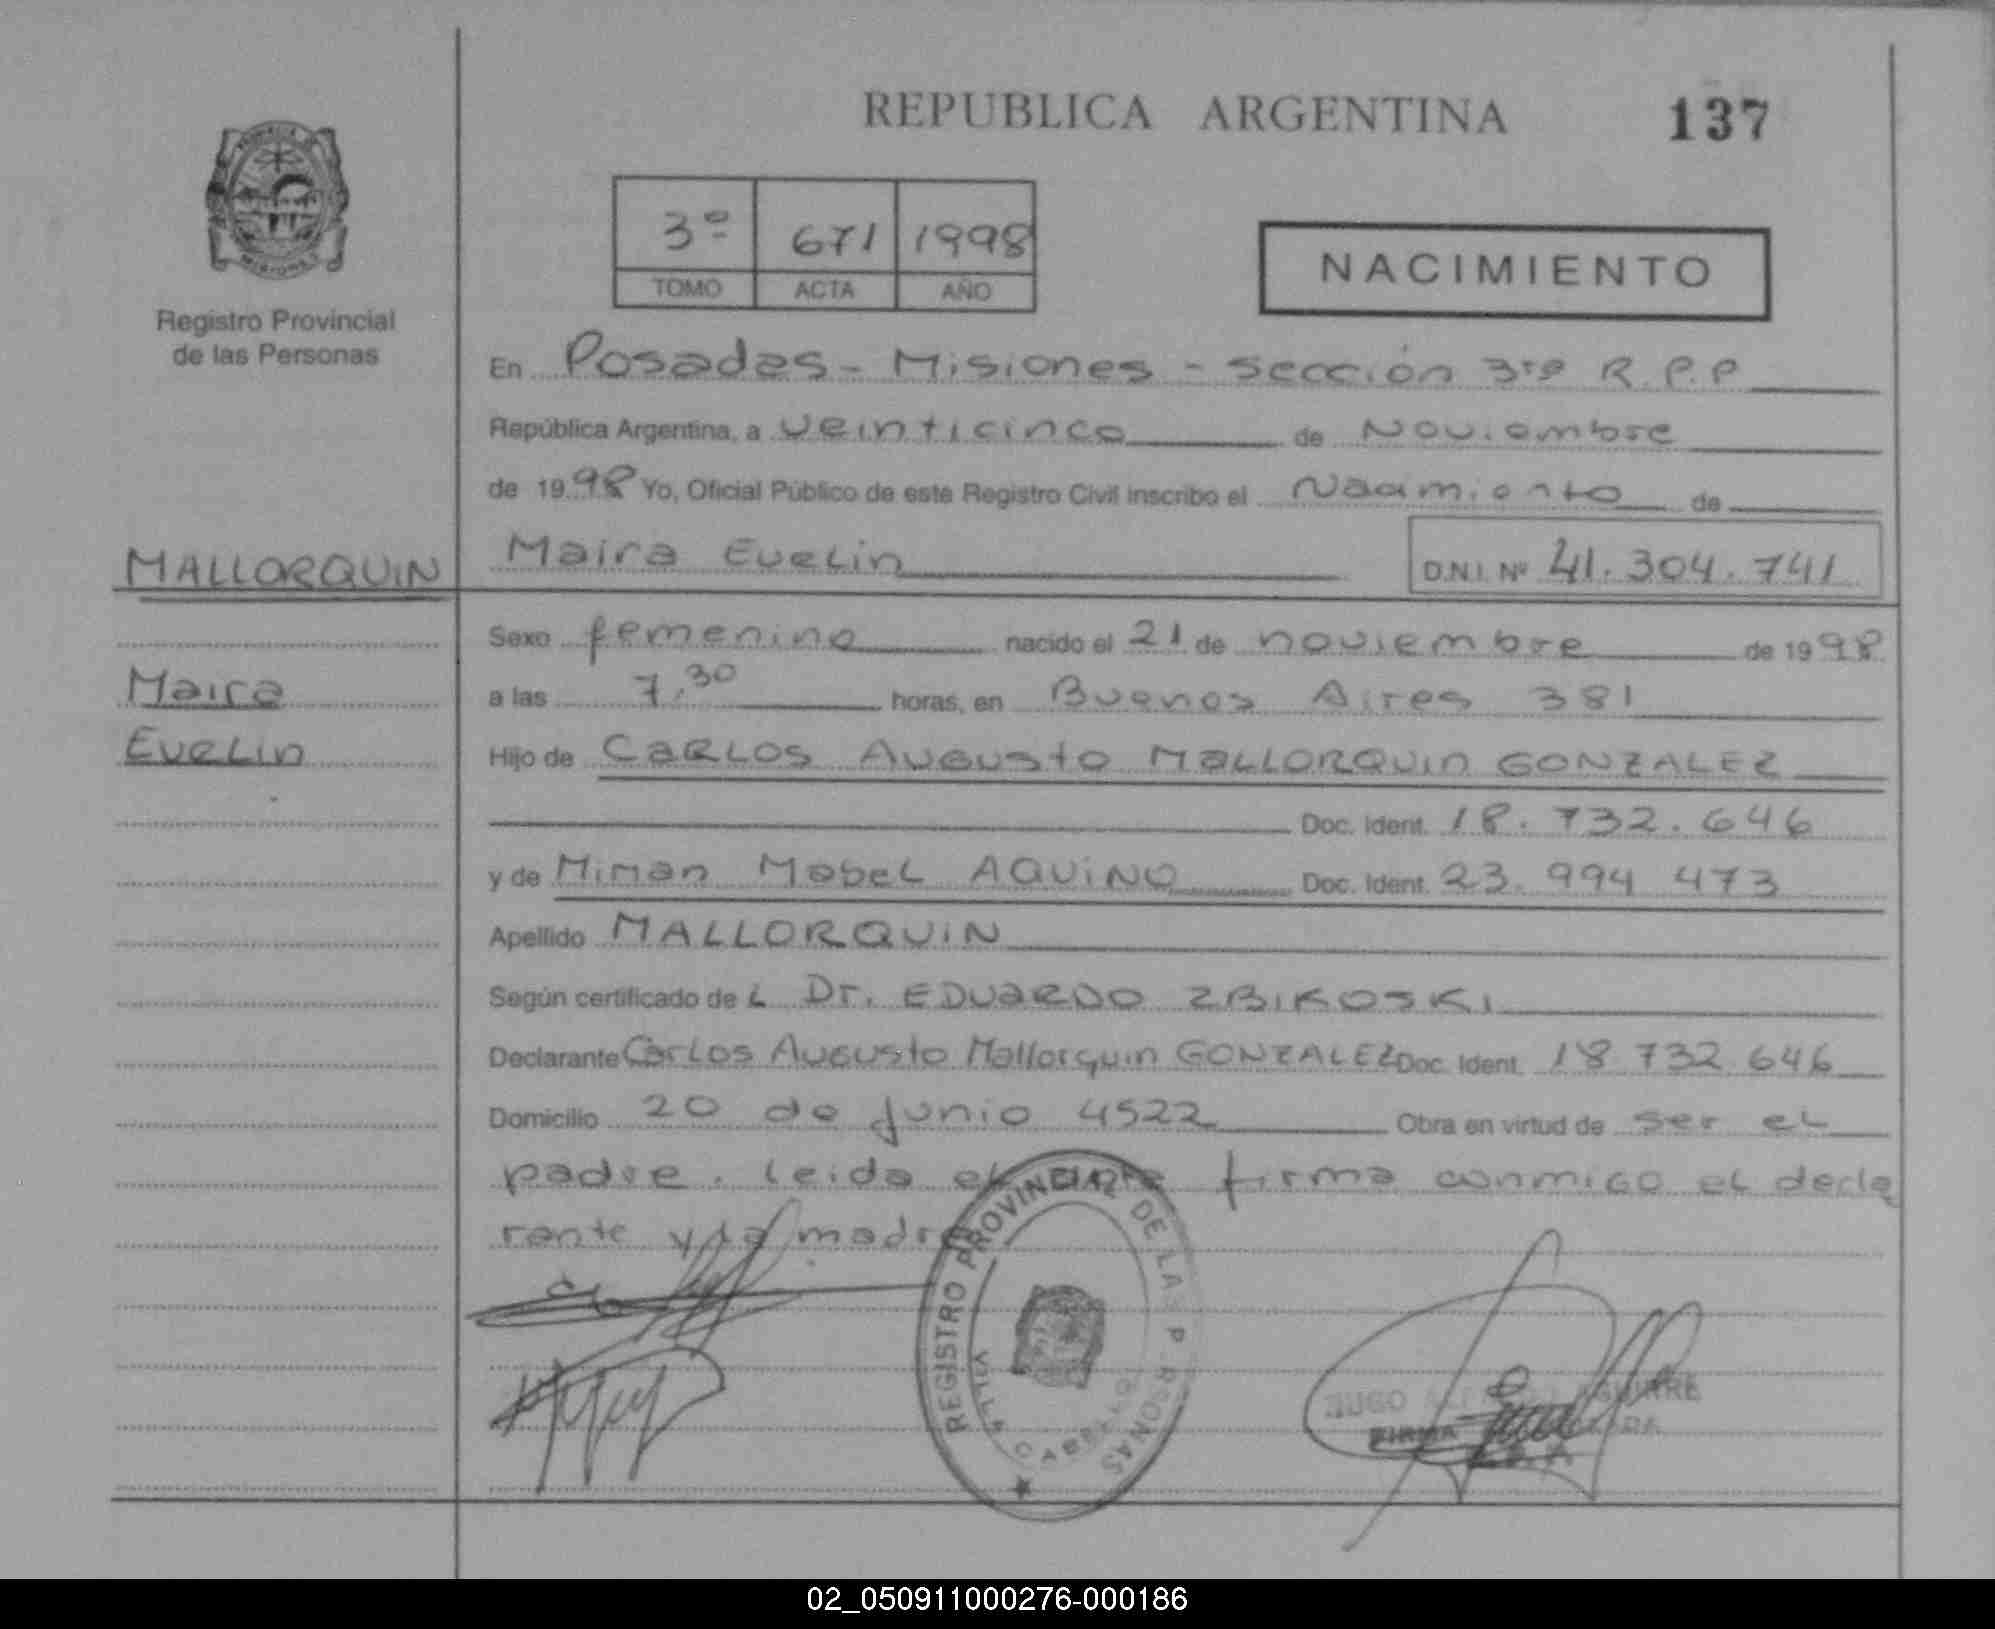 REPUBLICA ARGENTINA 137
3º 671 1998
TOMO ACTA AÑO
NACIMIENTO
Registro Provincial
de las Personas
En Posadas - Misiones - sección 3ra R.P.P
República Argentina, a veinticinco de Noviembre
de 1998 Yo, Oficial Público de este Registro Civil inscribo el Nacimiento de
MALLORQUIN
Maira Evelin D.N.I. Nº 41.304.741
Sexo femenino nacido el 21 de noviembre de 1998
Maira
a las 7.30 horas, en Buenos Aires 381
Evelin
Hijo de CARLOS AUGUSTO MALLORQUIN GONZALEZ
Doc. Ident. 18.732.646
y de Mirian Mabel AQUINO Doc. Ident. 23.994 473
Apellido MALLORQUIN
Según certificado de L Dr. EDUARDO ZBIKOSKI
Declarante Carlos Augusto Mallorquin GONZALEZ Doc. Ident. 18 732 646
Domicilio 20 de junio 4522 Obra en virtud de ser el
padre. leida el acta firma conmigo el decla
rante y la madre
REGISTRO PROVINCIAL DE LAS PERSONAS
VILLA CABELLO
HUGO AGUIRRE
FIRMA
02_050911000276-000186